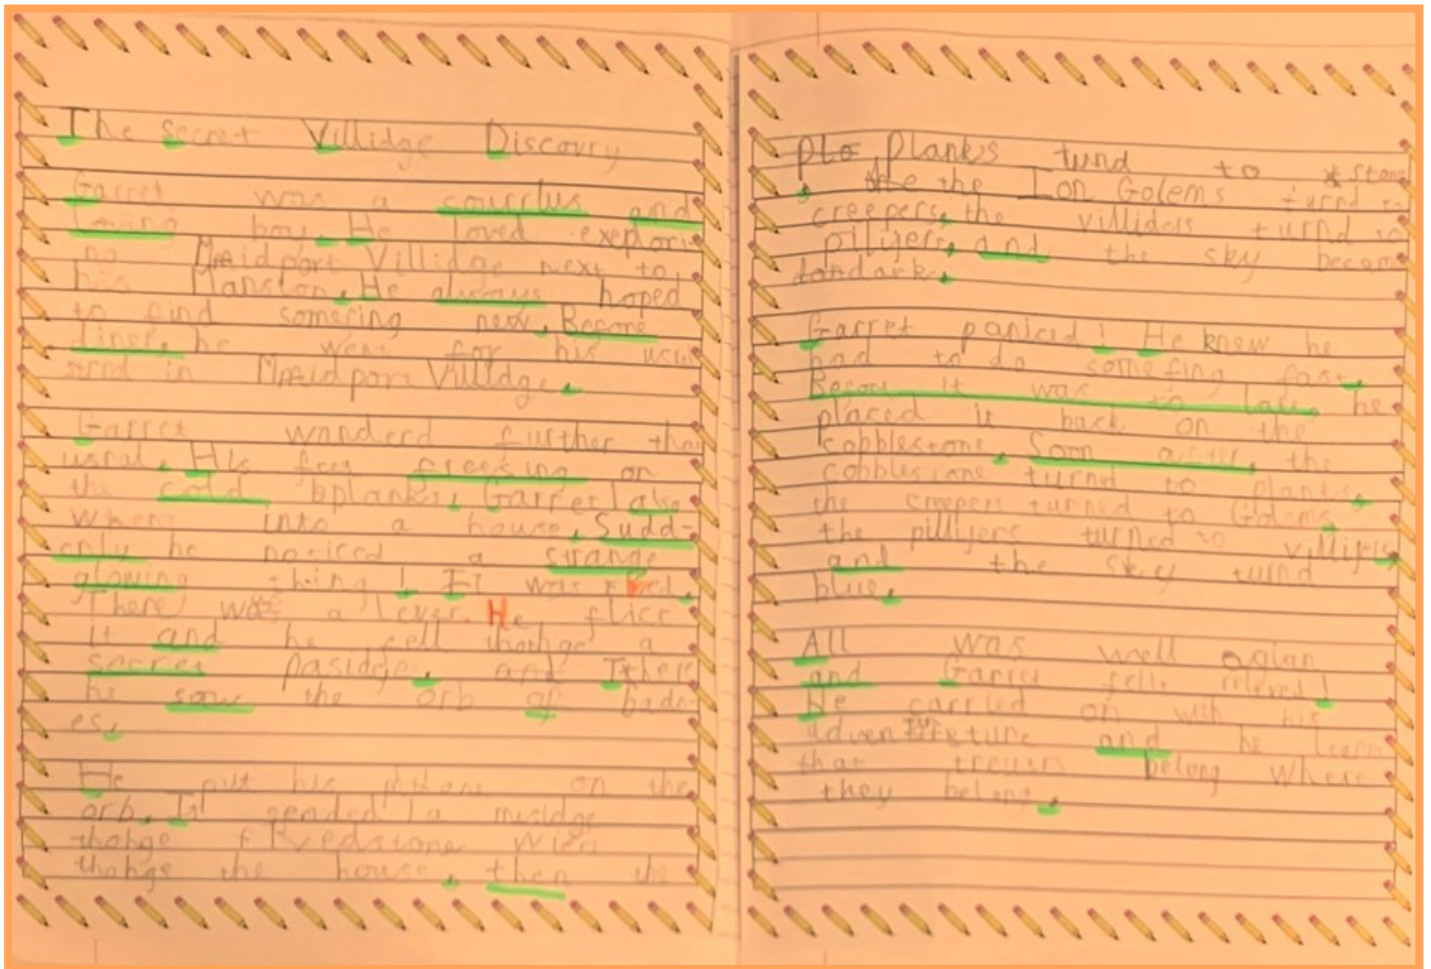 The Secret Villidge Discovry
Garret was a courrlus and
loving boy. He loved exeplorin
no Maidport Villidge next to
his Mansion. He always hoped
to find somering new. Before
diner, he went for his usu
in Maidport Villidge.
Garret wanderd further than
usral. His feet freesing on
the cold planks. Garret also
when into a house. Sudd-
enly he noticed a strange
glowing thing! It was red.
There was a lever. He flict
it and he fell thohge a
secret pasidge. and There
he saw the orb of badn-
es.
He put his on the
orb. It sended a mesidge
thohge Redstone Wier
thohge the house. then the
plo planks tund to stone
the the Ion Golems turnd to
creepers, the villidels turnd to
pilijers, and the sky becom
dark.
Garret paniced! He knew he
had to do somefing fast.
Before it was to late, he
placed it back on the
cobblestone. Soon after, the
cobblestone turnd to planks,
the creepers turned to Golems,
the pillijers turned to villijers
and the sky turnd
blue.
All was well agian
and Garret felt releved!
He carried on with his
adventure and he learn
that tresurs belong where
they belong.